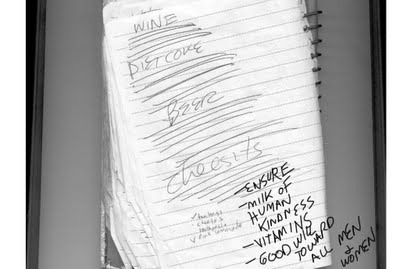 WINE
DIET COKE
BEER
Cheesits
- ENSURE
- MILK OF
HUMAN
KINDNESS
- VITAMINS
- GOOD WILL
TOWARD
ALL MEN
& WOMEN